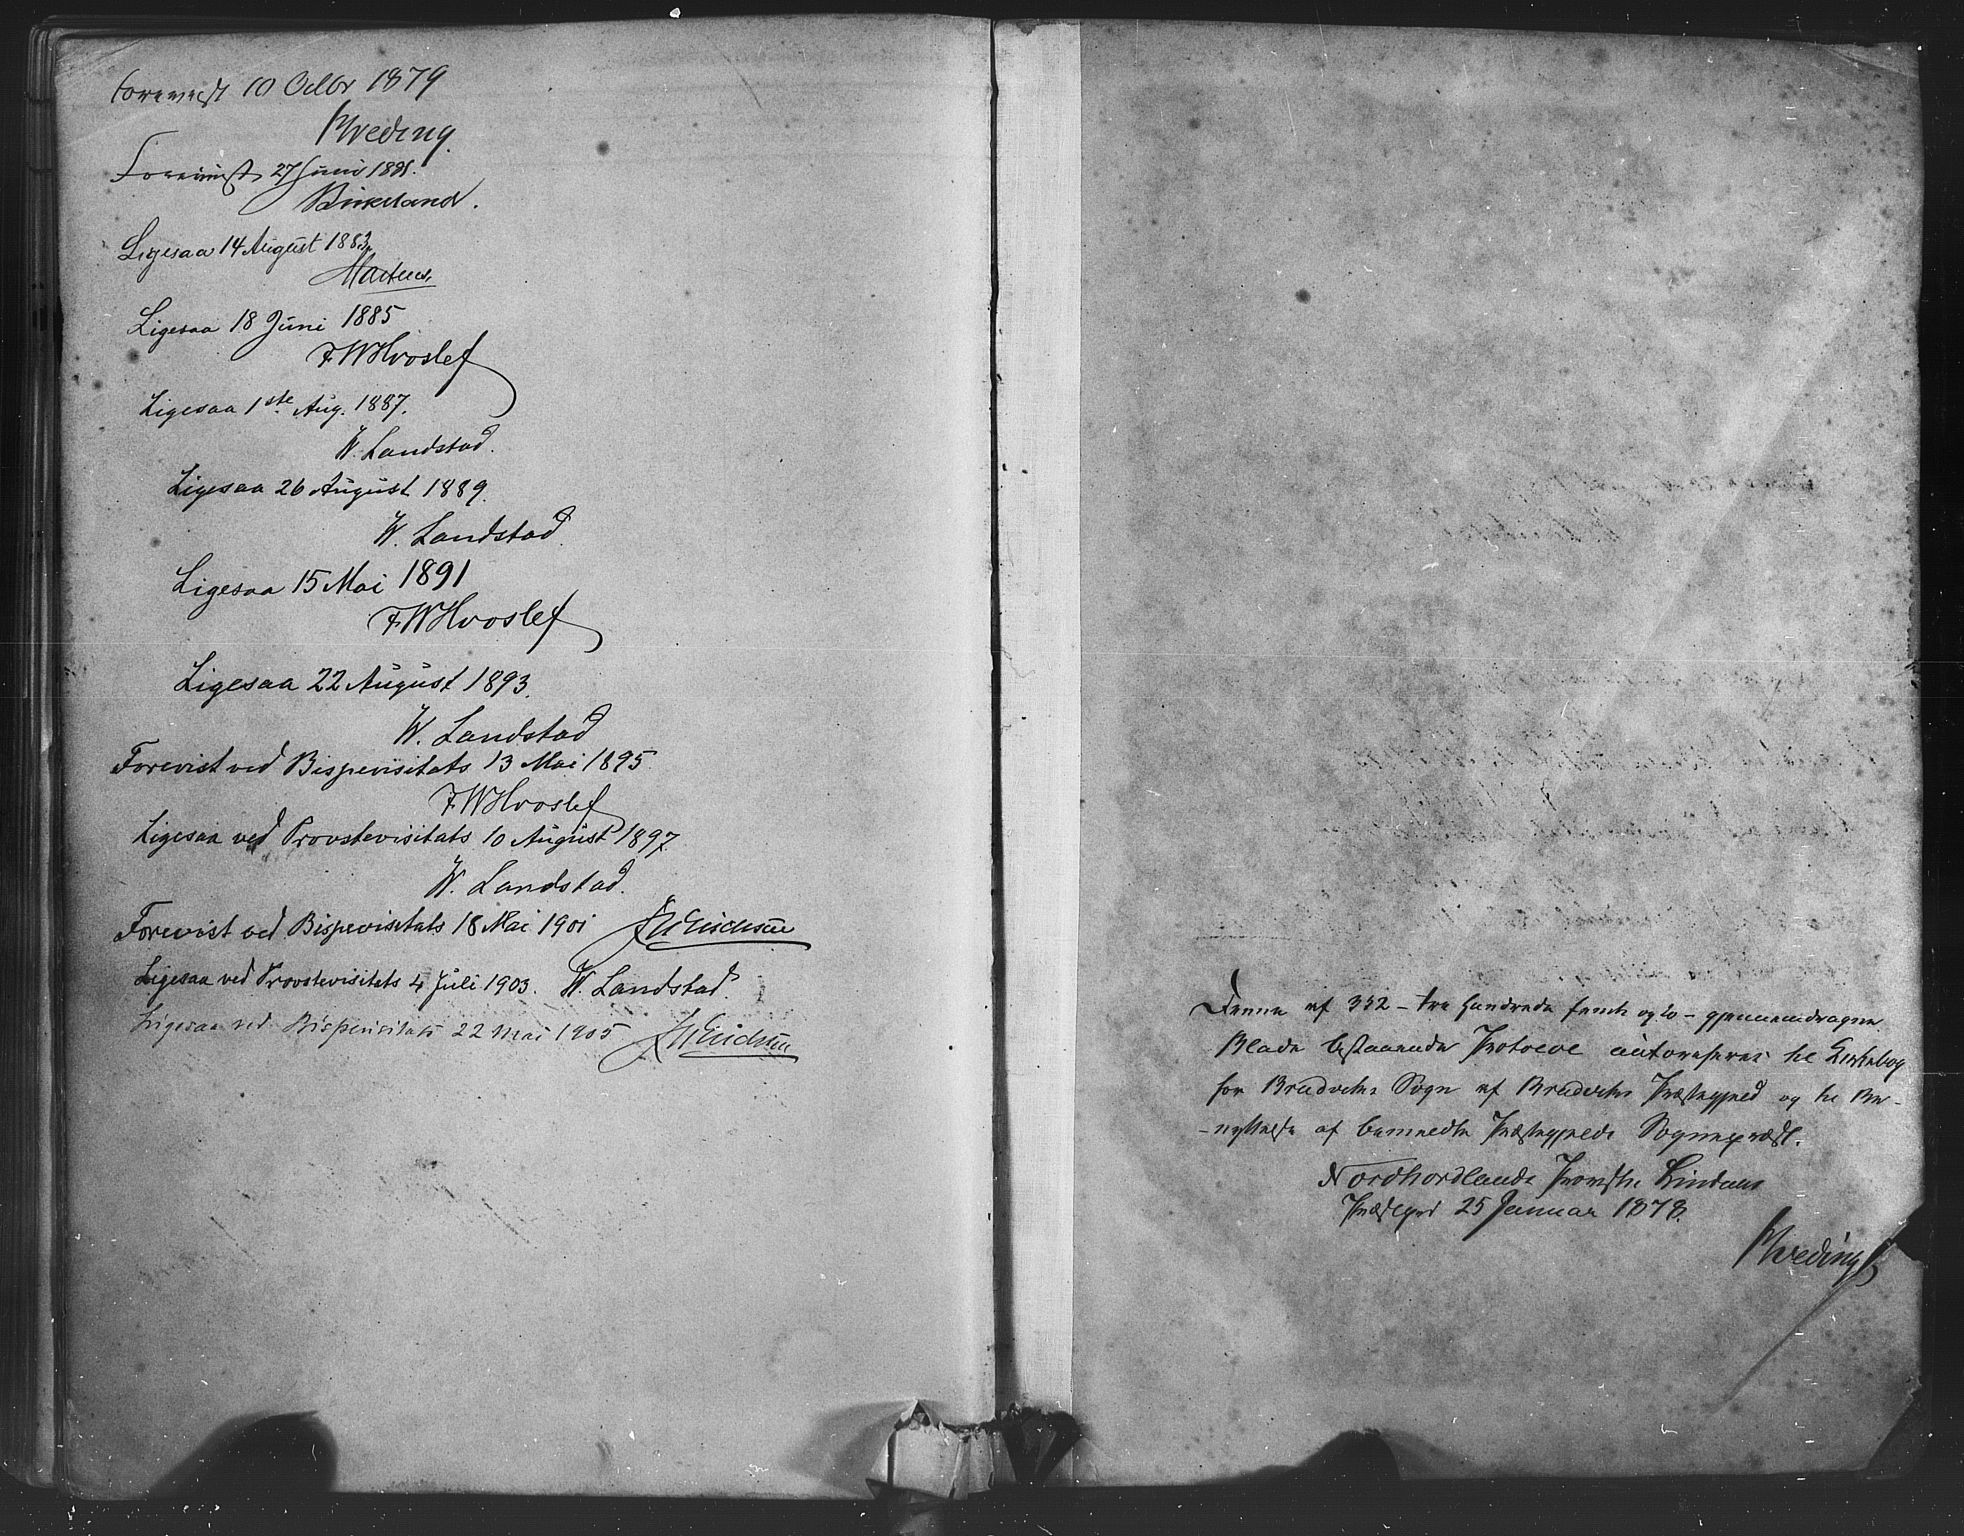 Forevist 10 Octbr 1879
Hveding.
Forevist 27 Juni 1881.
Birkeland.
Ligesaa 14 August 1883.
Martens.
Ligesaa 18 Juni 1885
F W Hvoslef
Ligesaa 1ste Aug. 1887.
W. Landstad.
Ligesaa 26 August 1889.
W. Landstad.
Ligesaa 15 Mai 1891
F W Hvoslef
Ligesaa 22 August 1893.
W. Landstad
Forevist ved Bispevisitats 13 Mai 1895.
F W Hvoslef
Ligesaa ved Provstevisitats 10 August 1897.
W. Landstad.
Forevist ved Bispevisitats 18 Mai 1901 Erichsen
Ligesaa ved Provstevisitats 4 Juli 1903. W. Landstad.
Ligesaa ved Bispevisitats 22 Mai 1905 Erichsen
Denne af 352 - tre hundrede femti og to - gjennemdragne
Blade bestaaende Protocol autoriseres til Kirkebog
for Bruviks Sogn af Bruviks Præstegjeld og til Be-
-nyttelse af bemeldte Præstegjelds Sognepræst.
Nordhordlands Provsti Lindaas
Præstegrd 25 Januar 1878.
Hveding